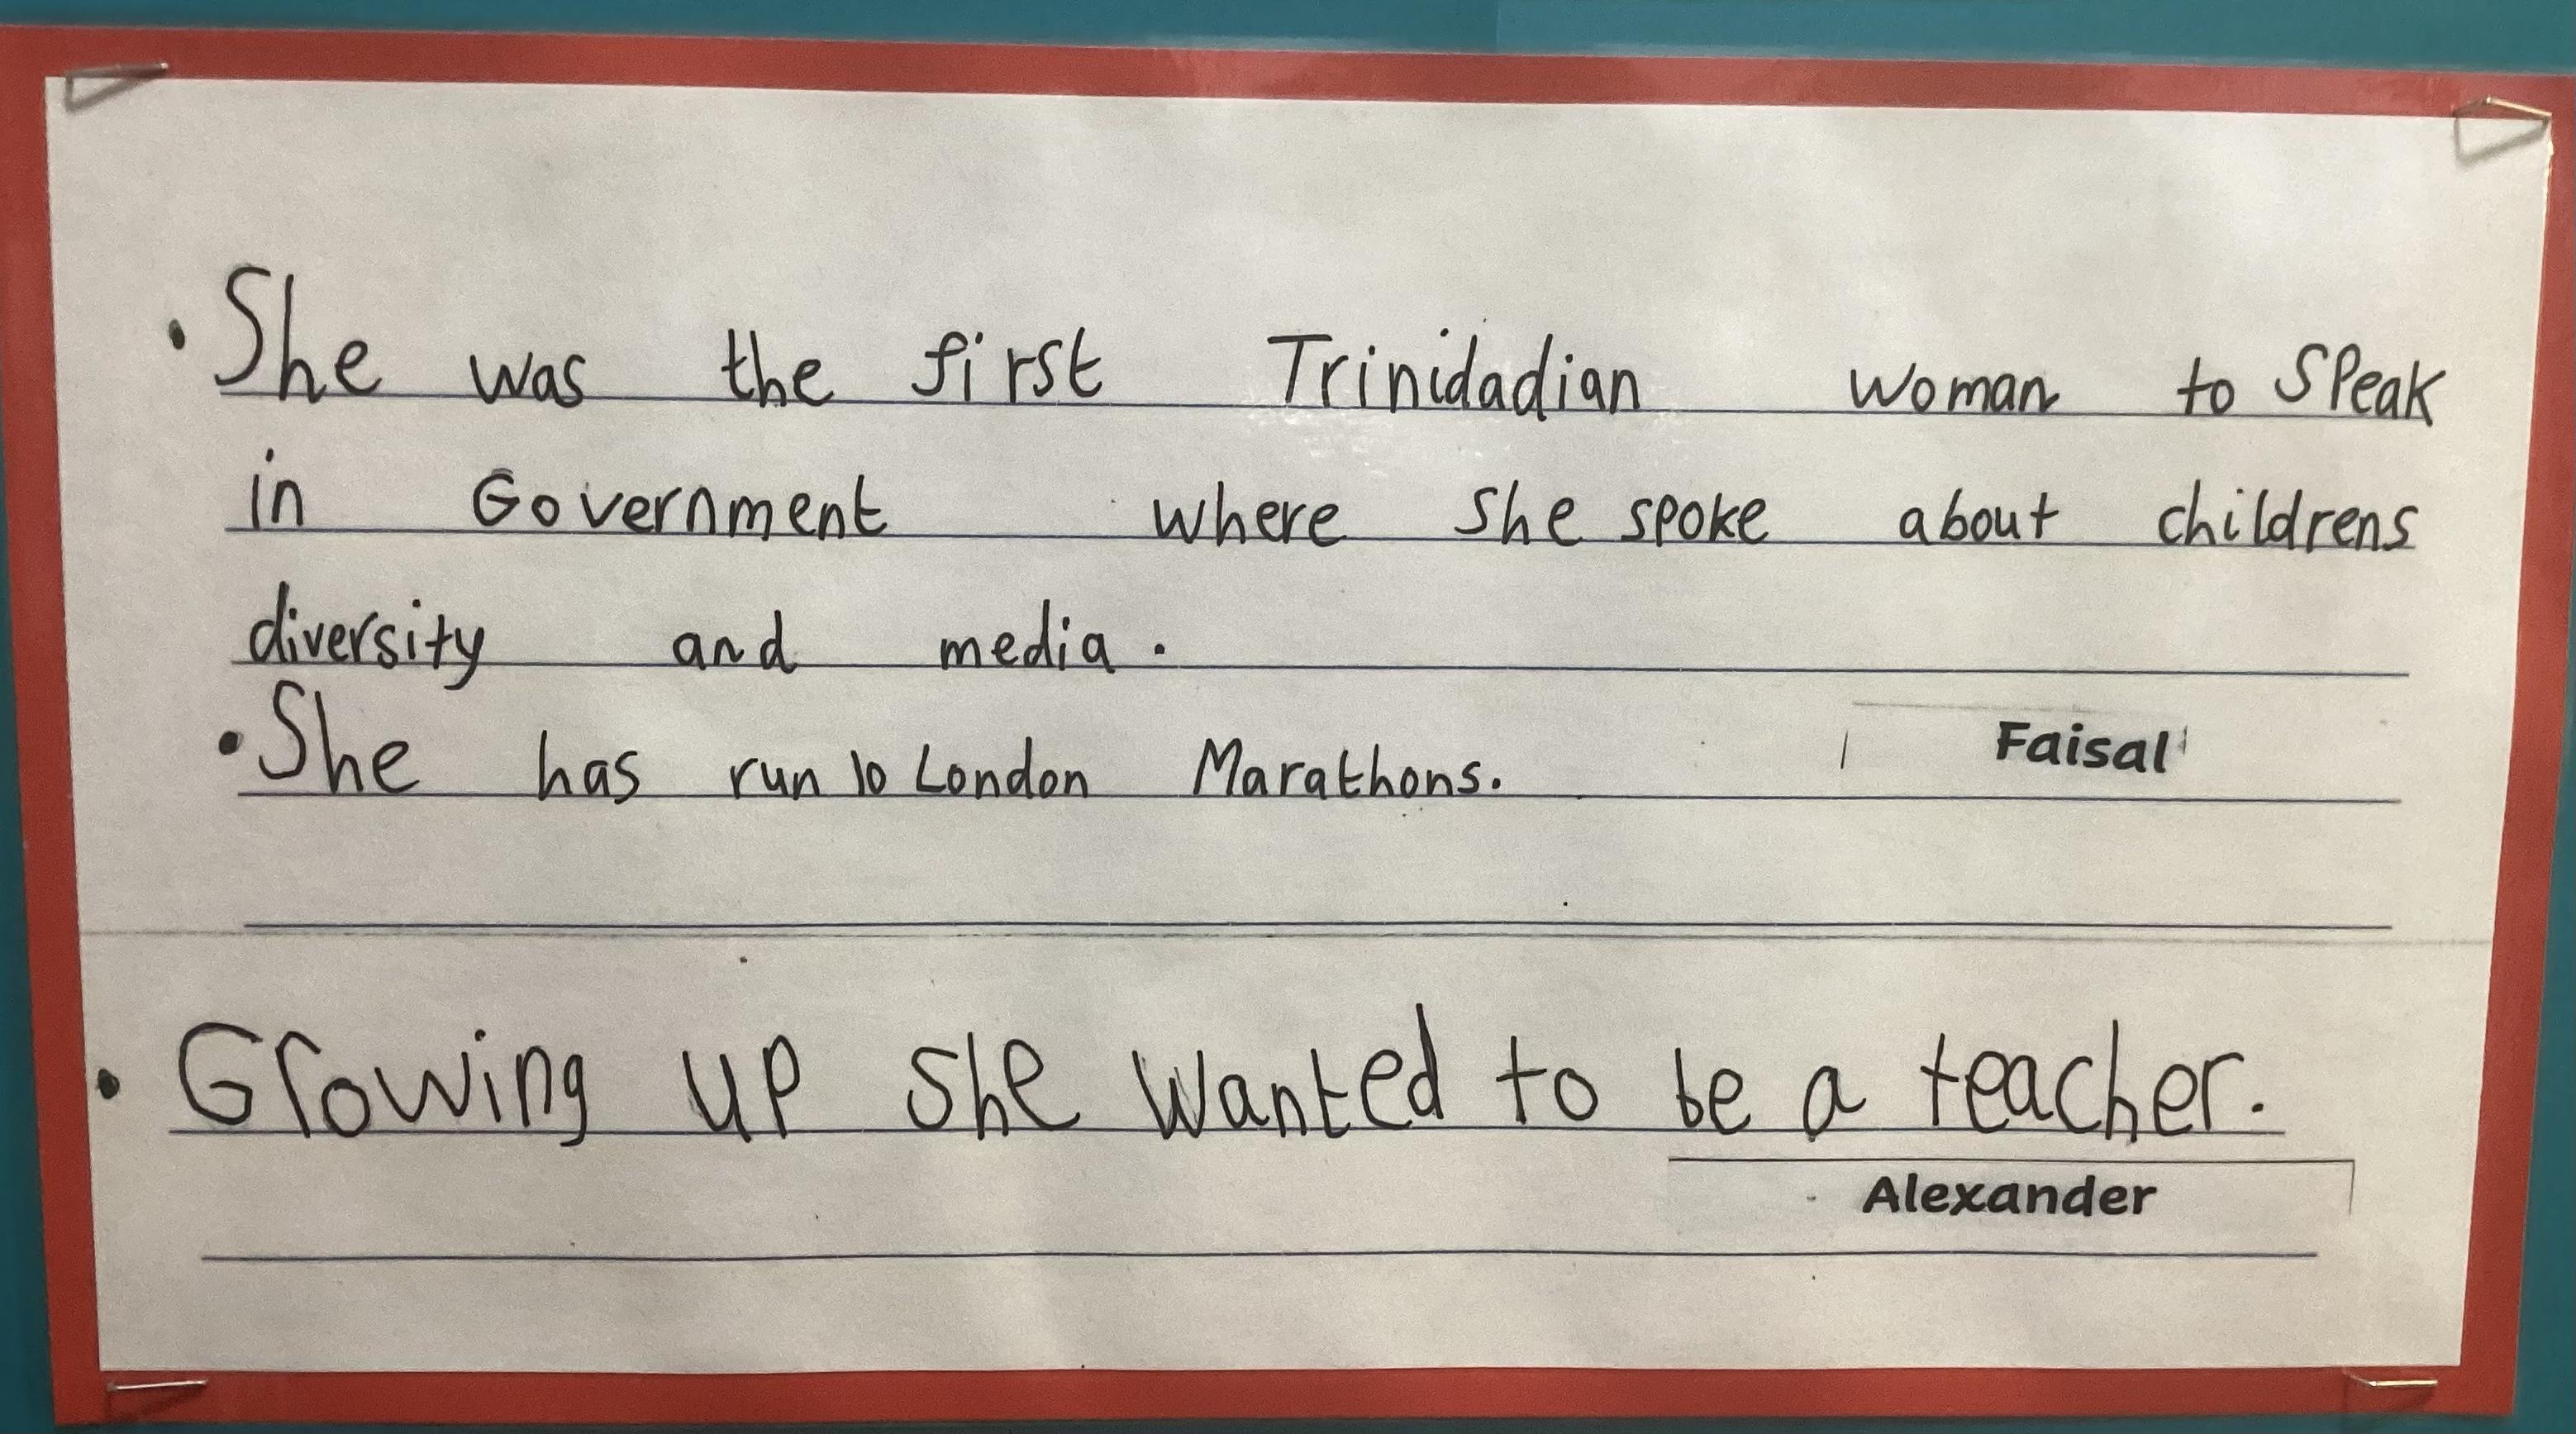 • She was the first Trinidadian woman to speak
in Government where she spoke about childrens
diversity and media.
• She has run 10 London Marathons.
Faisal
• Growing up she wanted to be a teacher.
Alexander